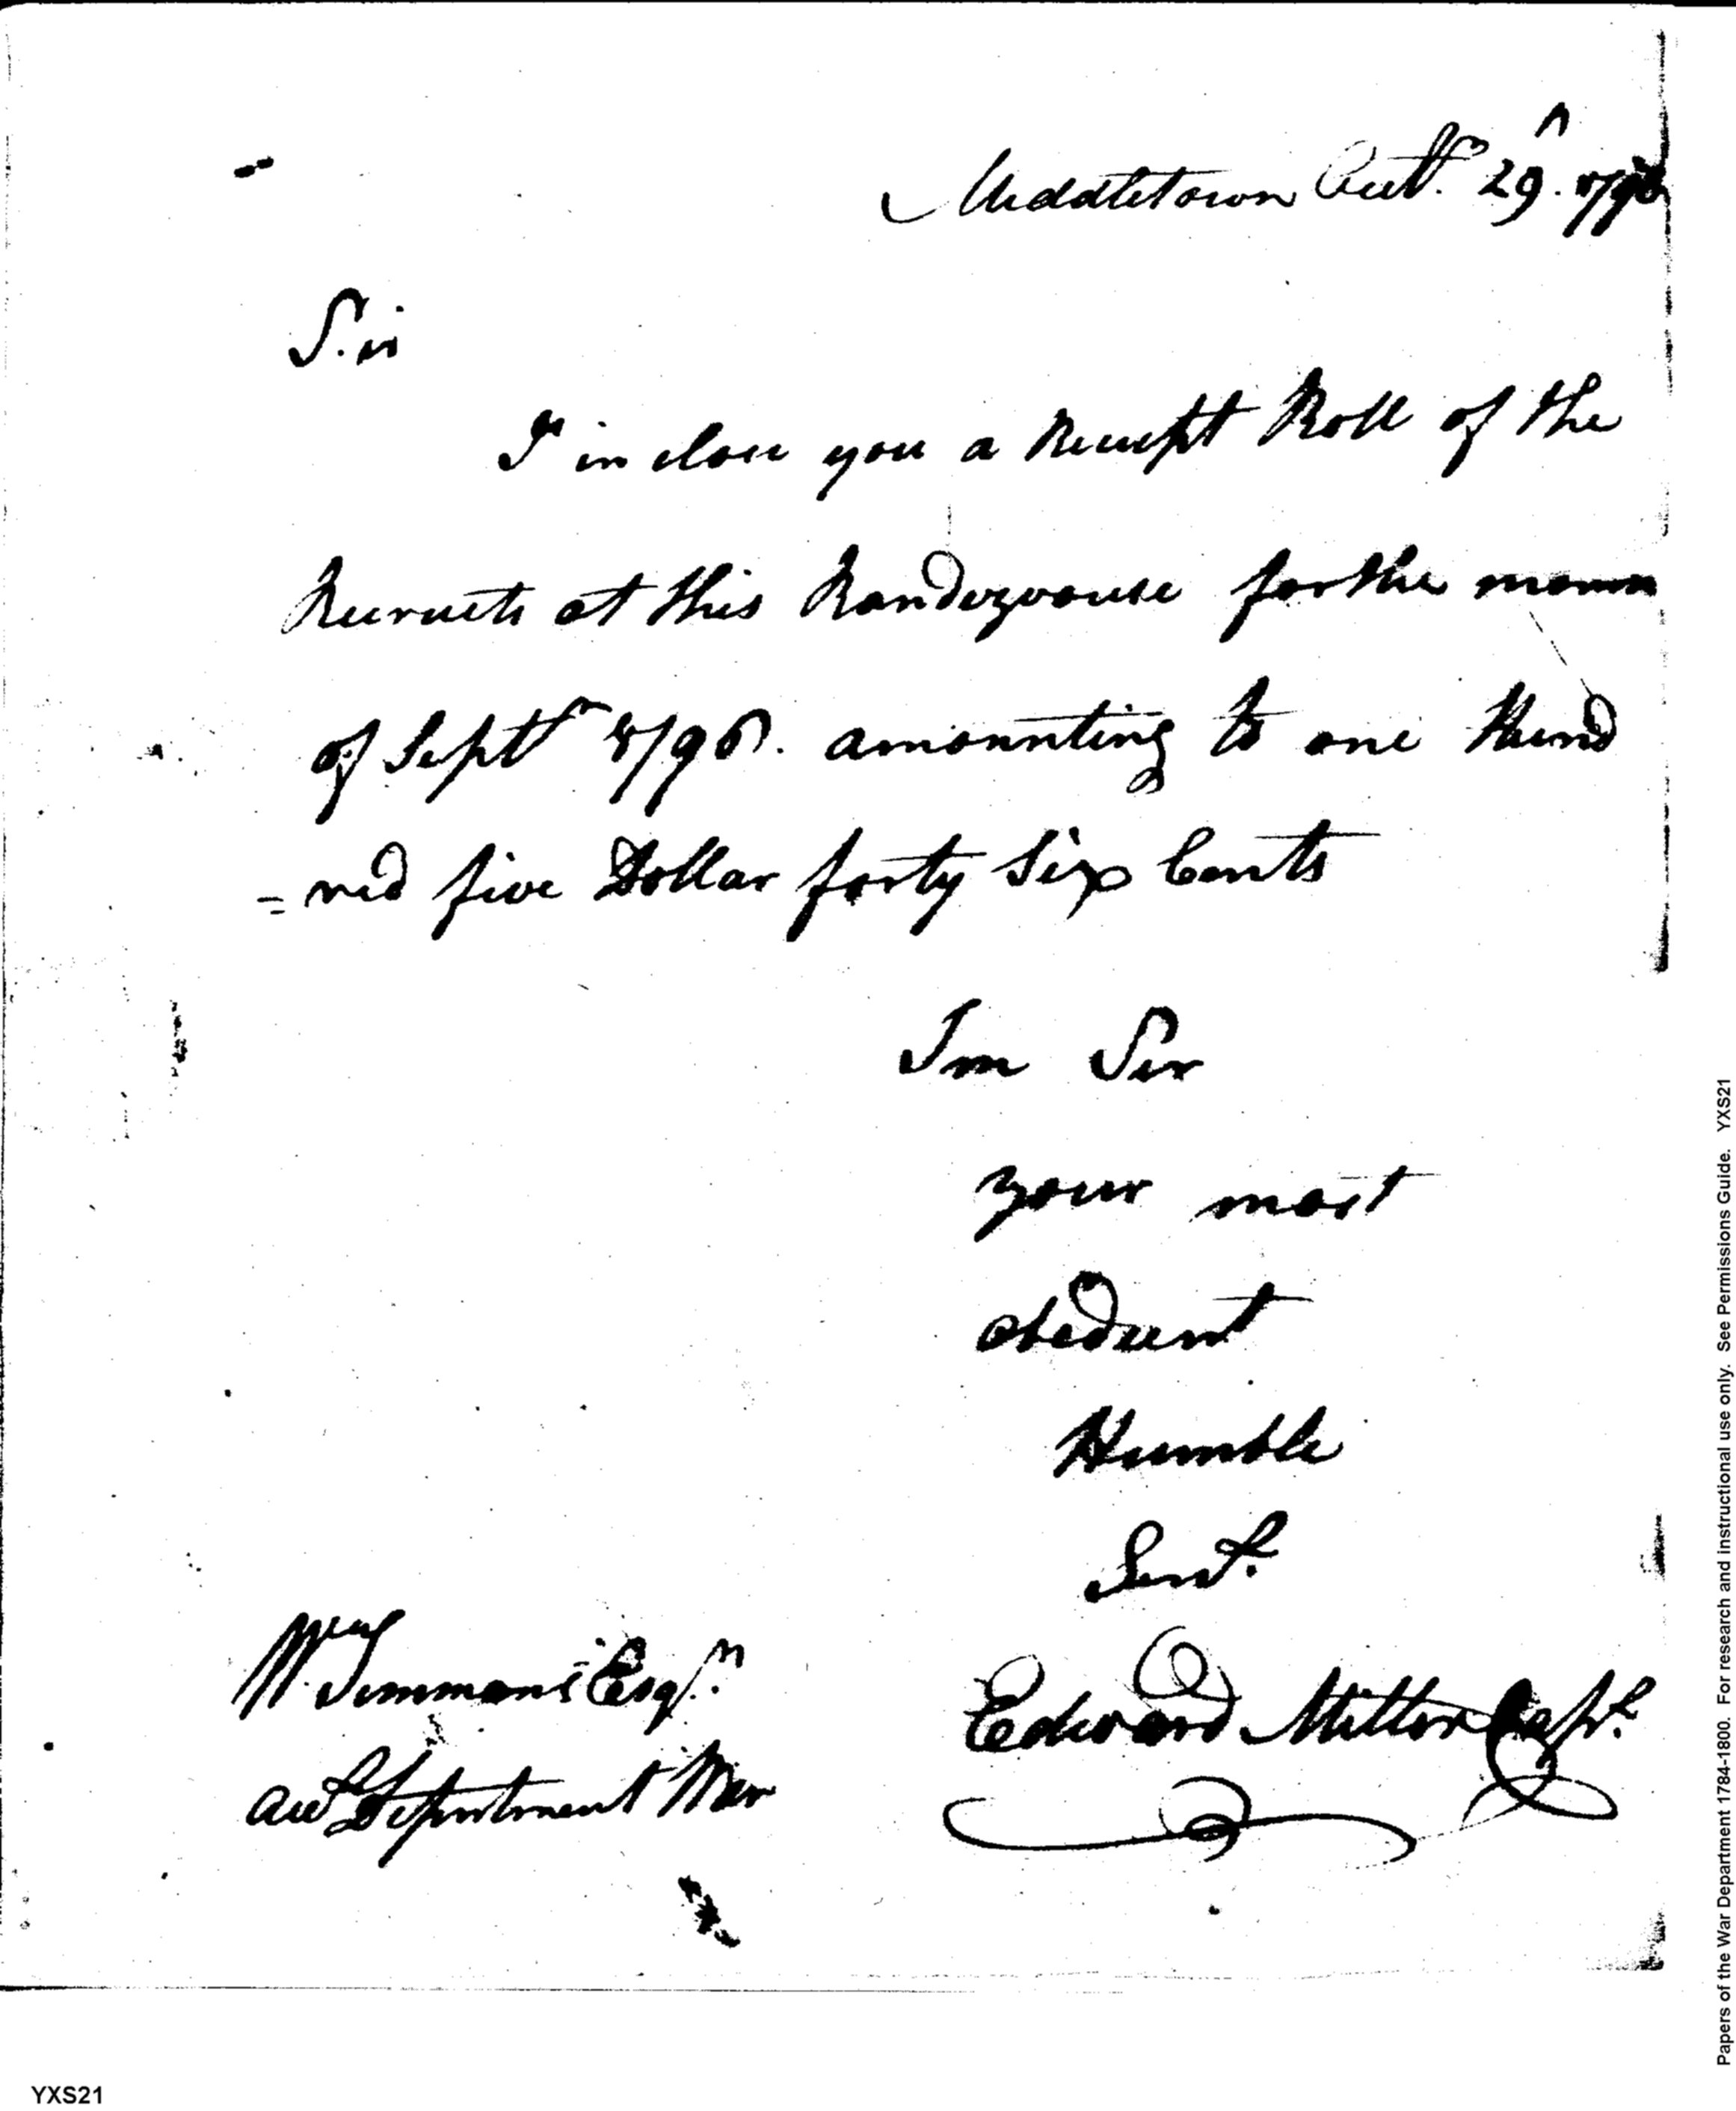 Middletown Octr 29th 1796
Sir
I inclose you a Receipt Roll of the
Recruits at this Randezvouse for the
of Septr 1796. amounting to one Hund
=red five Dollar forty Six Cents
Im Sir
your most
obedient
Humble
Servt.
Wm Simmons Esqr.
Edward Miller Capt.
Acct Department War
Papers of the War Department 1784-1800. For research and instructional use only. See Permissions Guide. YXS21
YXS21